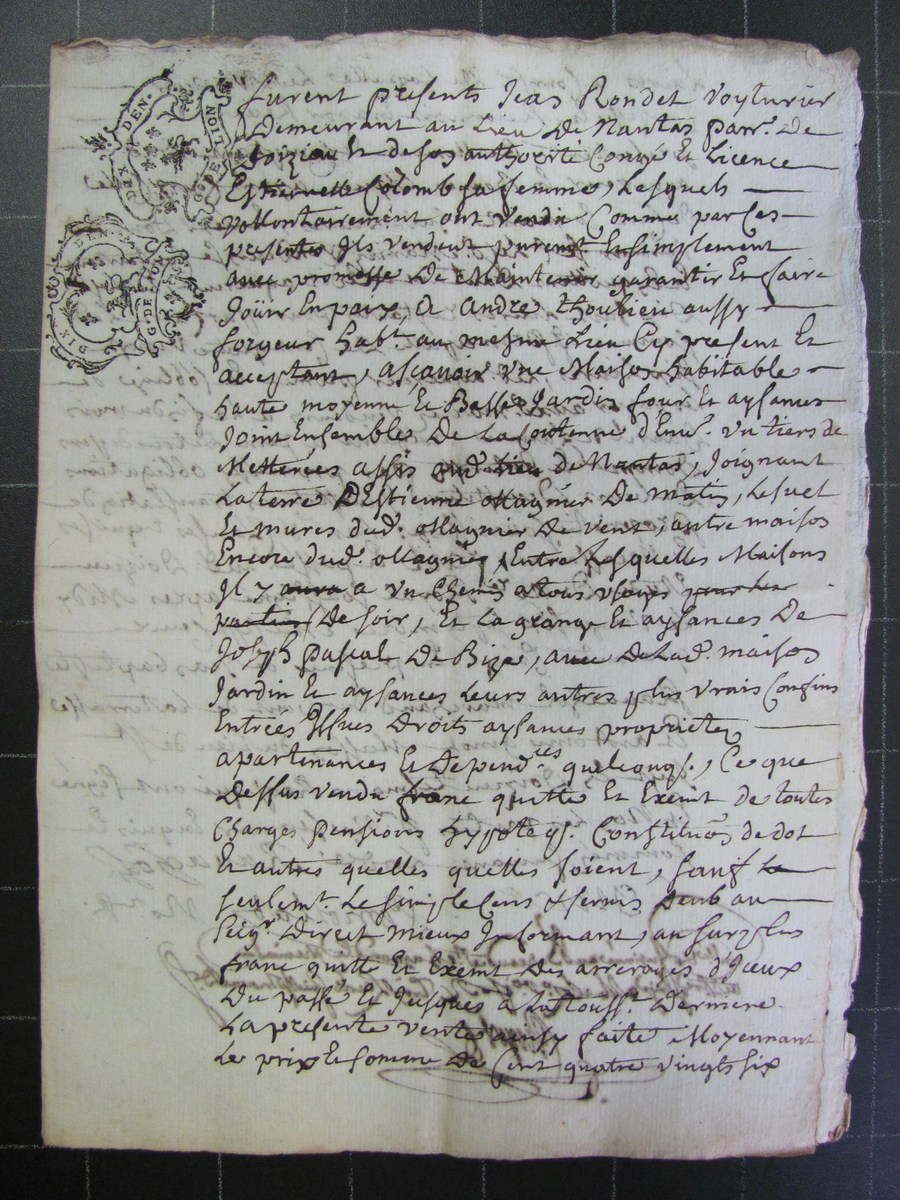 DEUX DEN.
G. DE LION
DIX DEN.
G. DE LION
furent presents Jean Rondet Voyturier
Demeurant au Lieu De Nantas parr.e De
Joizieu Et de son authorité Congé Et Licence
Estiennette Colomb sa femme, Lesquels
Vollontairement ont Vendu Comme par Ces
presentes Ils vendent purem.t Et simplement
avec promesse De Maintenir garantir Et faire
Joüir En paix, A andré thoulieu aussy
forgeur hab.t au mesme Lieu Cy present Et
acceptant, ascavoir vne Maison habitable
haute moyenne Et Basse Jardin four Et aysances
Joint Ensembles De La Contenue d'Env. Vn tiers de
Metterées assis aud. Lieu de Nantas, Joignant
La terre D'Estienne Magnier De matin, Le suel
Et mures dud. Magnier De vent, autre maison
Encore dud. Magnier, Entre Lesquelles Maisons
Il y aura a vn Chemin a tous vsages
De soir, Et La grange Et aysances De
Joseph pascal De Bize, avec De Lad. maison
Jardin Et aysances Leurs autres plus vrais Confins
Entrées Issues Droits aysances proprietes
apartenances Et Depend.ces quelconq., Ce que
Dessus vendu franc quitte Et Exemt de toutes
Charges pensions hypoteq. Constituõn de dot
Et autres quelles quelles soient, sauf Le
seulem.t Le simple Cens & servis Deub au
Seig.r Direct mieux Informant, au surplus
franc quitte Et Exemt Des arrerages d'Iceux
Du passé Et Jusques à La touss.t Derniere
La presente vente ainsy faite Moyennant
Le prix Et somme De Cent quatre vingts six